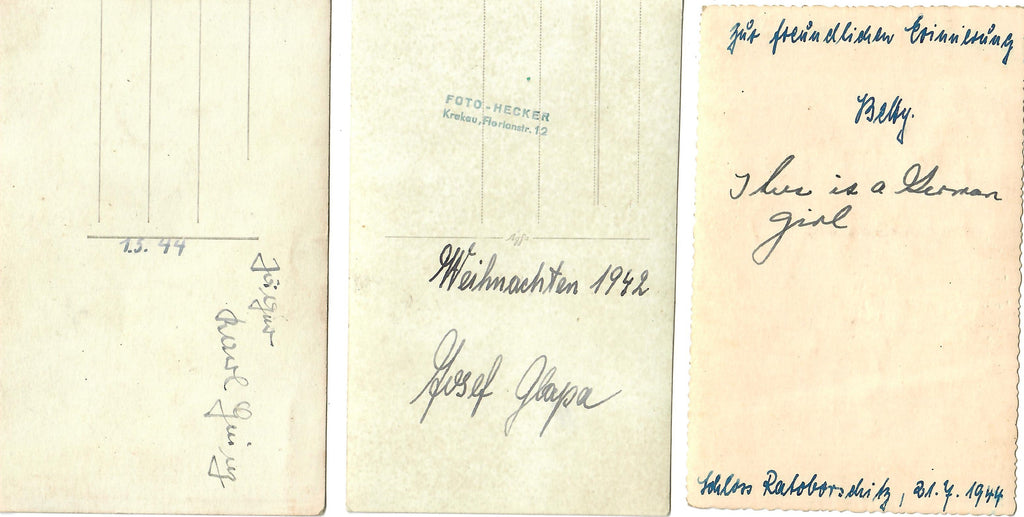 1.5. 44
Jäger
Karl
FOTO-HECKER
Krakau, Florianstr. 12
Agfa
Weihnachten 1942
Josef Glapa
Zur freundlichen Erinnerung
Betty.
This is a German
girl
Schloss Ratoborschitz, 21.7.1944